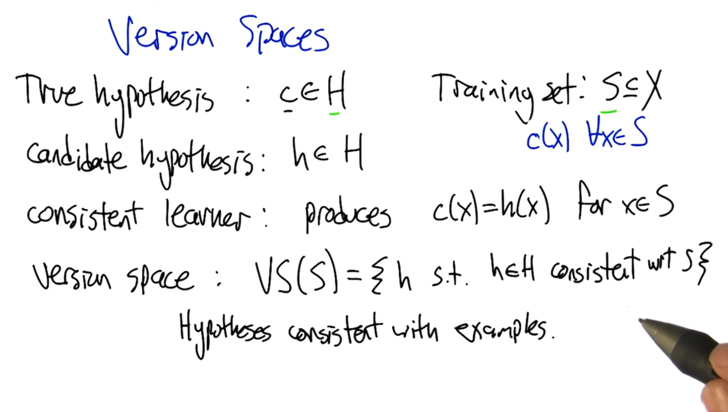 Version Spaces
True hypothesis : c ∈ H
Training set: S ⊆ X
c(x) ∀x∈S
candidate hypothesis: h ∈ H
consistent learner: produces c(x)=h(x) for x∈S
version space : VS(S) = { h s.t. h∈H consistent wrt S }
Hypotheses consistent with examples.